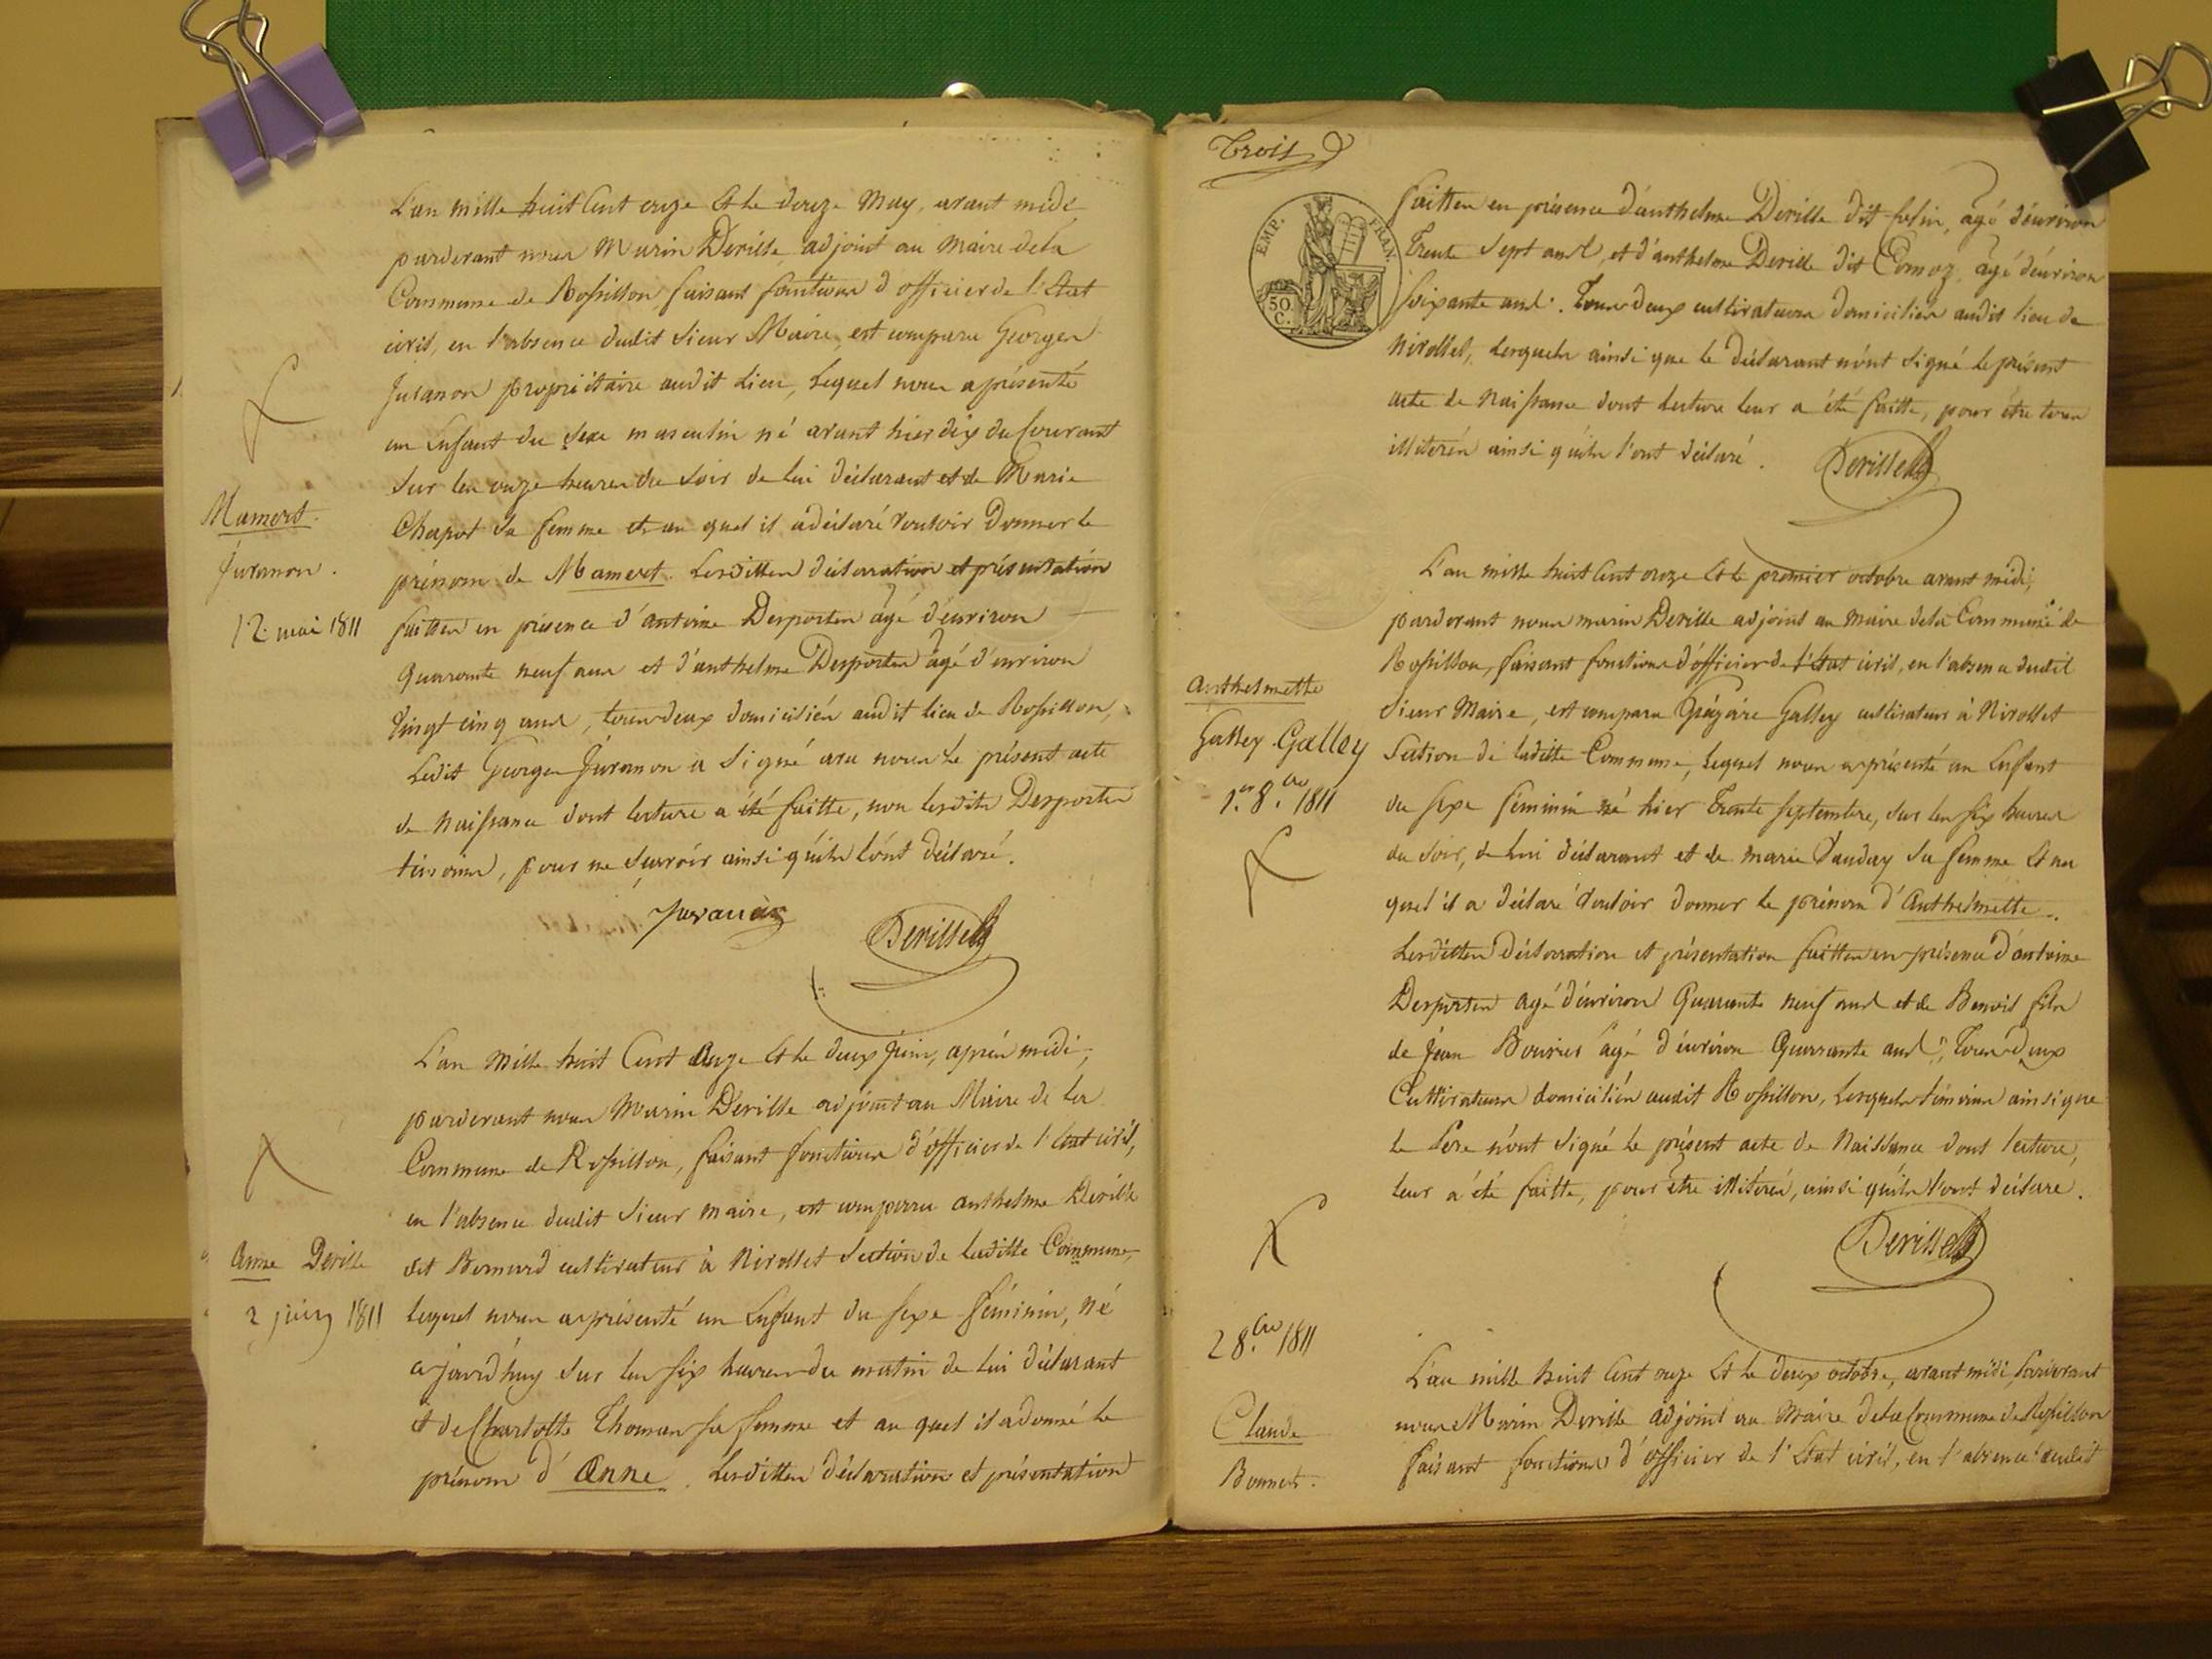 L'an mille huit Cent onze Et le douze May, avant midi
pardevant nous Marin Deville adjoint au maire de la
Commune de Rossillon, faisant fonctions d'officier de l'Etat
civil, en l'absence dudit Sieur Maire, est comparu Georges
Juvanon propriétaire audit Lieu, Lequel nous a présenté
un Enfant du sexe masculin né avant hier dix du Courant
Sur les onze heures du Soir de lui déclarant et de Marie
Chapot sa femme et au quel il a déclaré vouloir Donner le
prénom de Mamert. Lesdittes déclaration et présentation
faittes en présence d'antoine Desportes agé d'environ
Quarante neuf ans et d'anthelme Desportes agé d'environ
Vingt cinq ans, tous deux domiciliés audit lieu de Rossillon,
Ledit Georges Juvanon a Signé avec nous Le présent acte
de Naissance dont lecture a été faitte, non lesdits Desportes
témoins, pour ne Sçavoir ainsi qu'ils l'ont déclaré.
Juvanon
Deville
Mamert
Juvanon.
12 mai 1811
L'an Mille huit Cent Onze Et le deux Juin, après midi,
pardevant nous Marin Deville adjoint au Maire de La
Commune de Rossillon, faisant fonctions d'officier de l'Etat civil,
en l'absence dudit Sieur maire, est comparu anthelme Deville
dit Bernard cultivateur à Virollet Section de laditte Commune,
lequel nous a présenté un Enfant du sexe féminin, né
ajourd'huy Sur les six heures du matin de lui déclarant
et de Charlotte Thomas sa femme et au quel il a donné le
prénom d'Anne. Lesdittes déclaration et présentation
Anne Deville
2 juin 1811
Trois
EMP. FRAN.
50 C.
faittes en présence d'anthelme Deville dit , agé d'environ
Trente Sept ans, et d'anthelme Deville dit , agé d'environ
soixante ans. Tous deux cultivateurs domiciliés audit lieu de
Virollet, Lesquels ainsi que le déclarant n'ont signé le présent
acte de Naissance dont lecture leur a été faitte, pour être tous
illiterés ainsi qu'ils l'ont déclaré.
Deville
L'an mille huit Cent onze Et le premier octobre avant midi,
pardevant nous marin Deville adjoint au maire de la Commune de
Rossillon, faisant fonctions d'officier de l'Etat civil, en l'absence dudit
Sieur Maire, est comparu Grégoire Galley cultivateur à Virollet
Section de laditte Commune, Lequel nous a présenté un Enfant
du sexe féminin né hier Trente septembre, sur les six heures
du Soir, de lui déclarant et de marie Vauday sa femme Et au
quel il a déclaré vouloir donner le prénom d'Anthelmette.
Lesdittes déclaration et présentation faittes en présence d'antoine
Desportes agé d'environ Quarante neuf ans et de Benoit fils
de Jean agé d'environ Quarante ans, Tous deux
Cultivateurs domiciliés audit Rossillon, Lesquels témoins ainsi que
le Père n'ont Signé le présent acte de Naissance dont lecture,
leur a été faitte, pour être illiterés, ainsi qu'ils l'ont déclaré.
Deville
Anthelmette
Galley Galley
1er 8.bre 1811
L'an mille huit Cent onze Et le deux octobre, avant midi, Pardevant
nous Marin Deville adjoint au Maire de la Commune de Rossillon
faisant fonctions d'officier de l'Etat civil, en l'absence dudit
2 8.bre 1811
Claude
Bonnet.